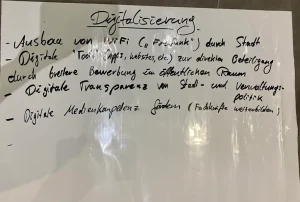 Digitalisierung
- Ausbau von WiFi („Freifunk") durch Stadt
- Digitale "Tools" (Apps, Websites, etc) zur direkten Beteiligung
durch breitere Bewerbung im öffentlichen Raum
- Digitale Transparenz von Stadt- und Verwaltungs-
politik
- Digitale Medienkompetenz fördern (Fachkräfte weiterbilden)
-